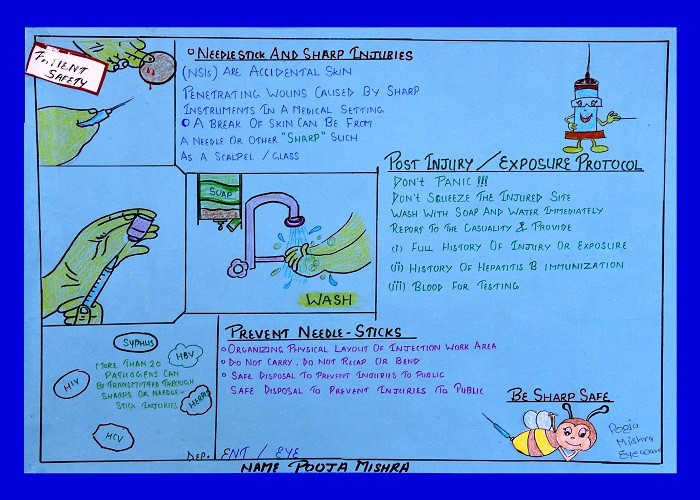 PATIENT
SAFETY
NEEDLESTICK AND SHARP INJURIES
(NSIs) ARE ACCIDENTAL SKIN
PENETRATING WOUNS CAUSED BY SHARP
INSTRUMENTS IN A MEDICAL SETTING
A BREAK OF SKIN CAN BE FROM
A NEEDLE OR OTHER "SHARP" SUCH
AS A SCALPEL / GLASS
SOAP
WASH
POST INJURY / EXPOSURE PROTOCOL
DON'T PANIC !!!
DON'T SQUEEZE THE INJURED SITE
WASH WITH SOAP AND WATER IMMEDIATELY
REPORT TO THE CASUALITY & PROVIDE
(i) FULL HISTORY OF INJURY OR EXPOSURE
(ii) HISTORY OF HEPATITIS B IMMUNIZATION
(iii) BLOOD FOR TESTING
SYPHLIS
HBV
MORE THAN 20
PATHOGENS CAN
BE TRANSMITTED THROUGH
SHARPS OR NEEDLE-
STICK INJURIES
HIV
HERPES
HCV
PREVENT NEEDLE-STICKS
ORGANIZING PHYSICAL LAYOUT OF INJECTION WORK AREA
DO NOT CARRY. DO NOT RECAP OR BEND
SAFE DISPOSAL TO PREVENT INJURIES TO PUBLIC
SAFE DISPOSAL TO PREVENT INJURIES TO PUBLIC
BE SHARP SAFE
Pooja
Mishra
Eye ward
DEP: ENT / EYE
NAME POOJA MISHRA